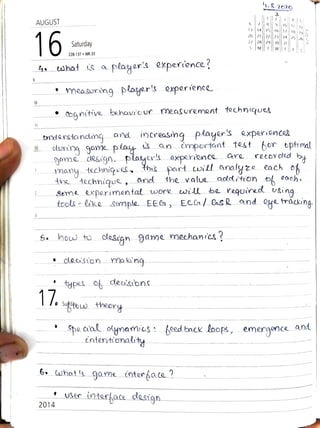 4.8.2020
AUGUST
16 Saturday
228-137 • WK 33
4. what is a player's experience?
• measuring player's experience
• cognitive behaviour measurement techniques
understanding and increasing player's experiences
during game play is an important test for optimal
game design. player's experience are recorded by
many techniques. this part will analyze each of
the technique, and the value addition of each.
some experimental work will be required using
tools-like sample EEG, ECG/GSR and eye tracking.
5. how to design game mechanics?
• decision making
• types of decisions
17 • flow theory
• special dynamics: feedback loops, emergence and
intentionality
6. what's game interface?
• user interface design
2014